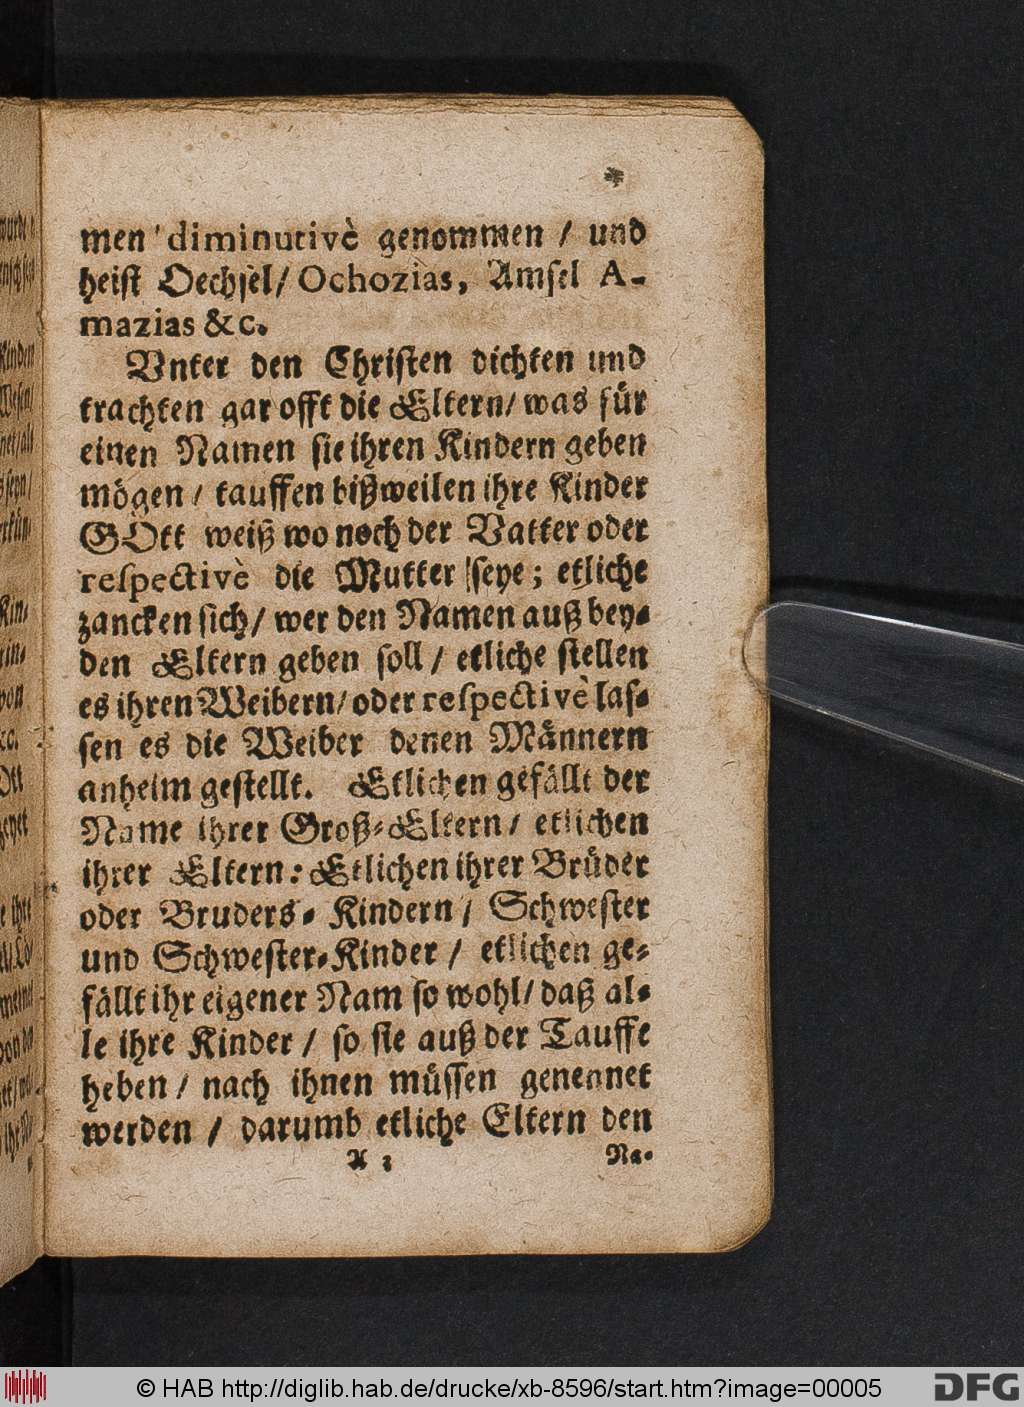 *
men diminutivè genommen / und
heist Oechsel / Ochozias, Amsel A-
mazias &c.
Vnter den Christen dichten und
trachten gar offt die Eltern / was für
einen Namen sie ihren Kindern geben
mögen / tauffen bißweilen ihre Kinder
GOtt weiß wo noch der Vatter oder
respectivè die Mutter seye; etliche
zancken sich / wer den Namen auß bey-
den Eltern geben soll / etliche stellen
es ihren Weibern / oder respectivè las-
sen es die Weiber denen Männern
anheim gestellt. Etlichen gefällt der
Name ihrer Groß-Eltern / etlichen
ihrer Eltern: Etlichen ihrer Brüder
oder Bruders-Kindern / Schwester
und Schwester-Kinder / etlichen ge-
fällt ihr eigener Nam so wohl / daß al-
le ihre Kinder / so sie auß der Tauffe
heben / nach ihnen müssen genennet
werden / darumb etliche Eltern den
Na-
© HAB http://diglib.hab.de/drucke/xb-8596/start.htm?image=00005
DFG